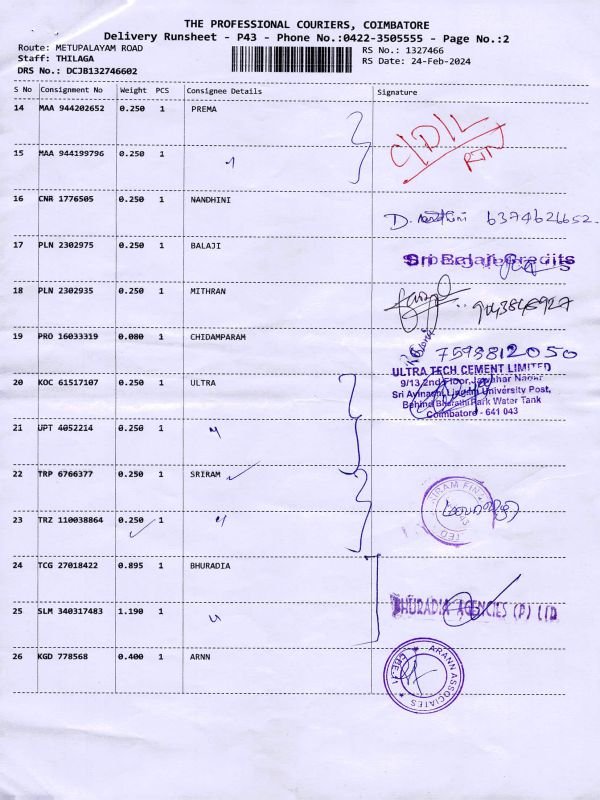 THE PROFESSIONAL COURIERS, COIMBATORE
Delivery Runsheet - P43 - Phone No.:0422-3505555 - Page No.:2
Route: METUPALAYAM ROAD
Staff: THILAGA
DRS No.: DCJB132746602
RS No.: 1327466
RS Date: 24-Feb-2024
S No Consignment No Weight PCS Consignee Details Signature
14 MAA 944202652 0.250 1 PREMA
15 MAA 944199796 0.250 1 "
C/D/L
RTN
16 CNR 1776505 0.250 1 NANDHINI
D. Nandhini 6374626652.
17 PLN 2302975 0.250 1 BALAJI
Sri Balaji Credits
18 PLN 2302935 0.250 1 MITHRAN
19 PRO 16033319 0.080 1 CHIDAMPARAM
7598812050
20 KOC 61517107 0.250 1 ULTRA
ULTRA TECH CEMENT LIMITED
9/13, 2nd Floor, Jawahar Nagar
Sri Avinashi Lingam University Post,
Behind Bharathi Park Water Tank
Coimbatore - 641 043
21 UPT 4052214 0.250 1 "
22 TRP 6766377 0.250 1 SRIRAM
23 TRZ 110038864 0.250 1 "
24 TCG 27018422 0.895 1 BHURADIA
25 SLM 340317483 1.190 1 "
BHURADIA AGENCIES (P) LTD
26 KGD 778568 0.400 1 ARNN
ARANN ASSOCIATES